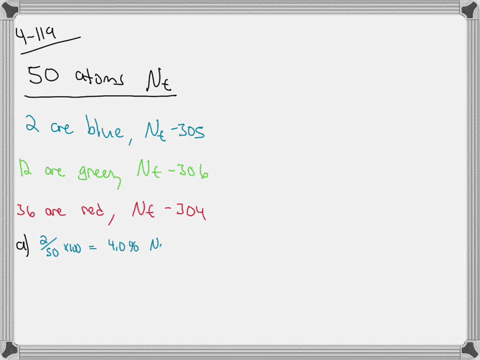 4-119
50 atoms Nt
2 are blue, Nt-305
12 are green, Nt-306
36 are red, Nt-304
a) 2/50 x100 = 4.0% N